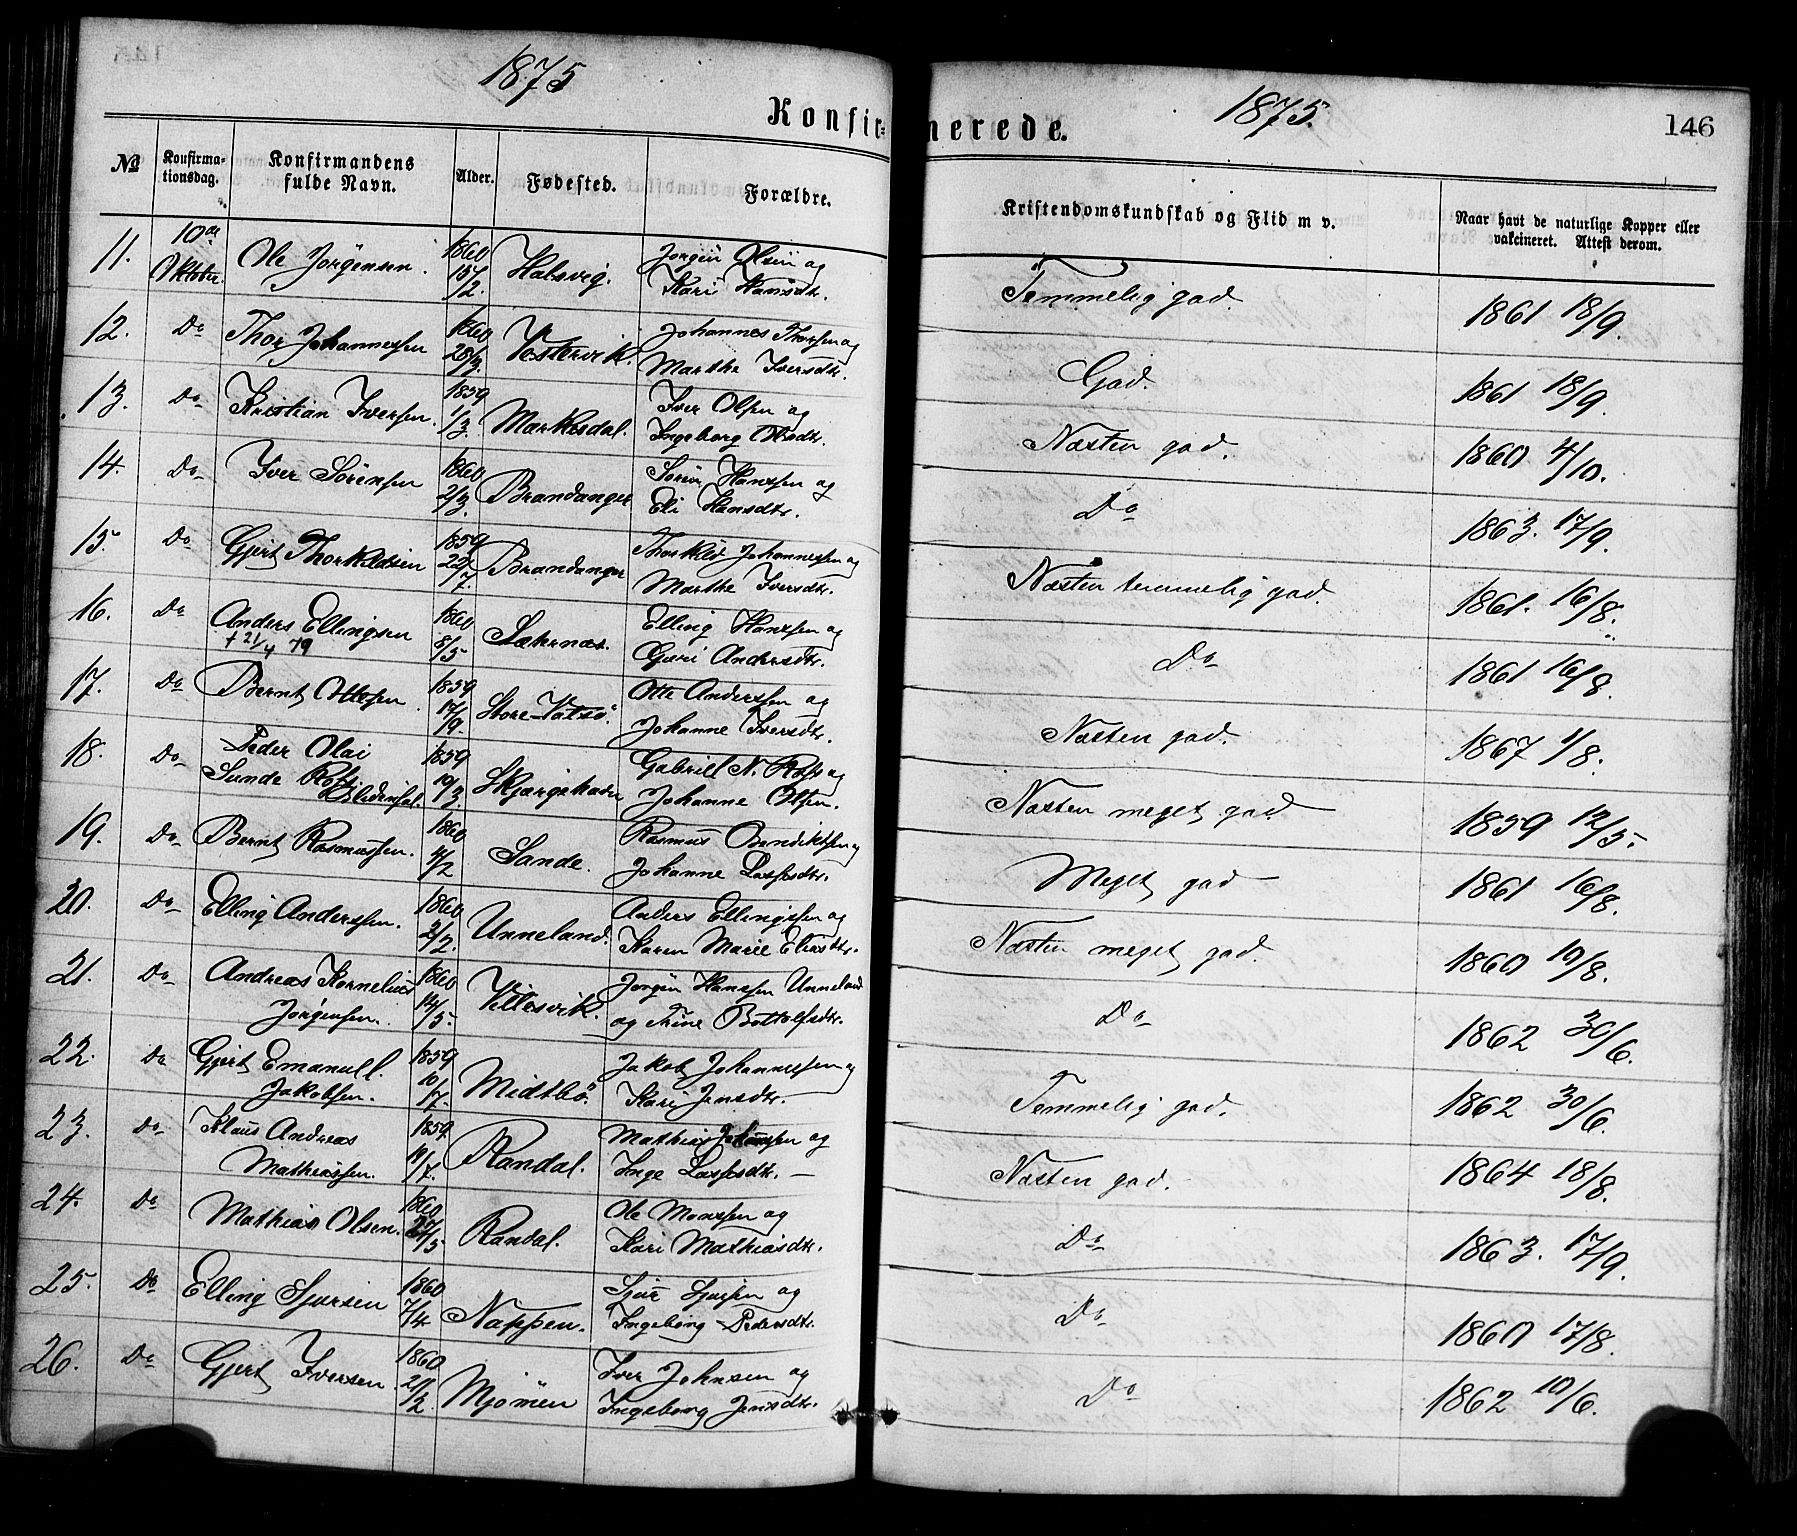 1875
1875.
146
Konfir=
merede.
No
Konfirma=
tionsdag.
Konfirmandens
fulde Navn.
Alder.
Fødested.
Forældre.
Kristendomskundskab og Flid m v.
Naar havt de naturlige Kopper eller
vakcineret. Attest derom.
11. 10de Oktober. Ole Jørgensen. 1860 15/2. Halsvig. Jørgen Olsen og
Kari Hansdtr. Temmelig god. 1861 18/9.
12. Do Thor Johannessen 1860 28/3. Vestervik. Johannes Thorsen og
Marthe Iversdtr. God. 1861 18/9.
13. Do Kristian Iversen. 1859 1/3. Mærkesdal. Iver Olsen og
Ingeborg Olsdtr. Næsten god. 1860 4/10.
14. Do Iver Sørensen 1860 2/3. Brandanger Sørin Hanssen og
Eli Hansdtr. Do 1863. 17/9.
15. Do Gjert Thorkildsen 1859 22/7. Brandanger Thorkild Johannessen og
Marthe Iversdtr. Næsten temmelig god. 1861. 16/8.
16. Do Anders Ellingsen
† 21/4 79 1860 8/5 Elling Hanssen og
Guri Andersdtr. Do 1861 16/8.
17. Do Bernt Ottesen. 1859 17/9. Store-Vatsø. Otte Anderssen og
Johanne Iversdtr. Næsten god. 1867 1/8.
18. Do Peder Olai
Sunde 1859 19/3 Skjærgehavn Gabriel N. og
Johanne Olsen. Næsten meget god 1859 12/5.
19. Do Bernt Rasmussen. 1860 4/2 Sande. Rasmus Bendiktsen og
Johanne Lassesdtr. Meget god 1861 16/8.
20. Do Elling Anderssen. 1860 2/2. Unneland. Anders Ellingssen og
Karen Marie Eliasdtr. Næsten meget god. 1860 19/8.
21. Do Andreas Kornelius
Jørgensen. 1860 14/5. Villesvik. Jørgen Hanssen Unneland
og Trine Bottolfsdtr. Do 1862 30/6.
22. Do Gjert Emanuel.
Jakobsen. 1859 10/7. Midtbø. Jakob Johannessen og
Kari Jensdtr. Temmelig god. 1862 30/6.
23. Do Klaus Andreas
Mathiassen. 1859. 11/7. Randal. Mathias Johanssen og
Inge Lassesdtr. Næsten god. 1864 18/8.
24. Do Mathias Olsen. 1860 Randal. Ole Monssen og
Kari Mathiasdtr. Do 1863. 17/9.
25. Do Elling Sjursen 1860 7/4 Nappen. Sjur Sjursen og
Ingeborg Pedersdtr. Do 1860 17/8.
26. Do Gjert Iversen. 1860 21/2. Mjømen Iver Johnsen og
Ingeborg Jensdtr. Do 1862 10/6.